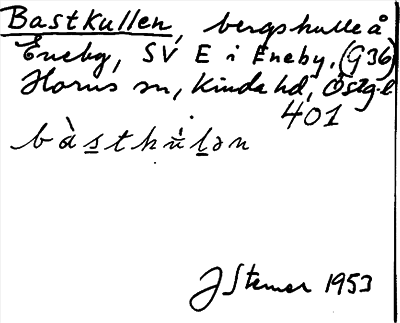 Bastkullen, bergskulle å
Eneby, SV E i Eneby. (G36)
Horns sn, Kinda hd, Östg.l
401
bàs̲tkŭ̀l̲ən
J Stemer 1953